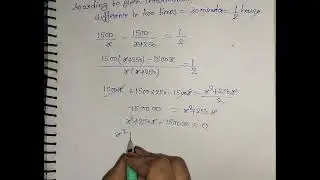 According to given information
difference in two times = 30 minutes = 1/2 hours
1500/x - 1500/x+250 = 1/2
1500(x+250) - 1500x / x(x+250) = 1/2
1500x + 1500x250 - 1500x = x²+250x / 2
750000 = x²+250x
x²+250x - 750000 = 0
x²